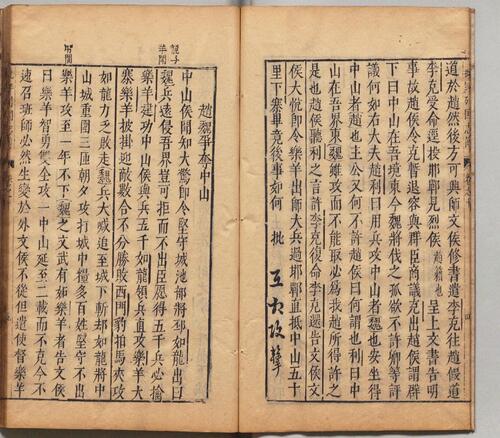 道於趙然後方可興師文侯修書遣李克往趙假道
李克受命逕投邯鄲見烈侯
趙籍也
呈上文書告明
事故趙侯令克暫退容與群臣商議克出趙侯謂群
下曰中山在吾境東今魏將伐之孤欲不許卿等評
議何如右大夫趙利曰用兵攻中山者魏也安坐得
中山者趙也主公又何不許趙侯曰何謂也利曰中
山在吾界東魏雖攻而不能取必為我趙所得許之
是也趙侯聽利之言許李克復命李克還告文侯文
侯大悅即令樂羊出師大兵過邯鄲直抵中山五十
里下寨畢竟後事如何
批
互相攻擊
趙魏爭奪中山
中山侯聞知大驚即令堅守城池部將邳如龍出曰
魏兵遠侵吾界豈可拒而不出臣愿得五千兵必擒
樂羊建功中山侯與兵五千如龍領兵直攻樂羊大
寨樂羊披掛迎敵數合不分勝敗西門豹拍馬夾攻
如龍力乏敗走魏兵大威追至城下斬却如龍將中
山城重圍三匝朝夕攻打城中糧多百姓堅守不出
樂羊攻至一年不下魏之文武有妬樂羊者告文侯
曰樂羊智勇雙全攻一中山延至二載而不克今不
速召班師必然生變於外文侯不從但遣使督樂羊